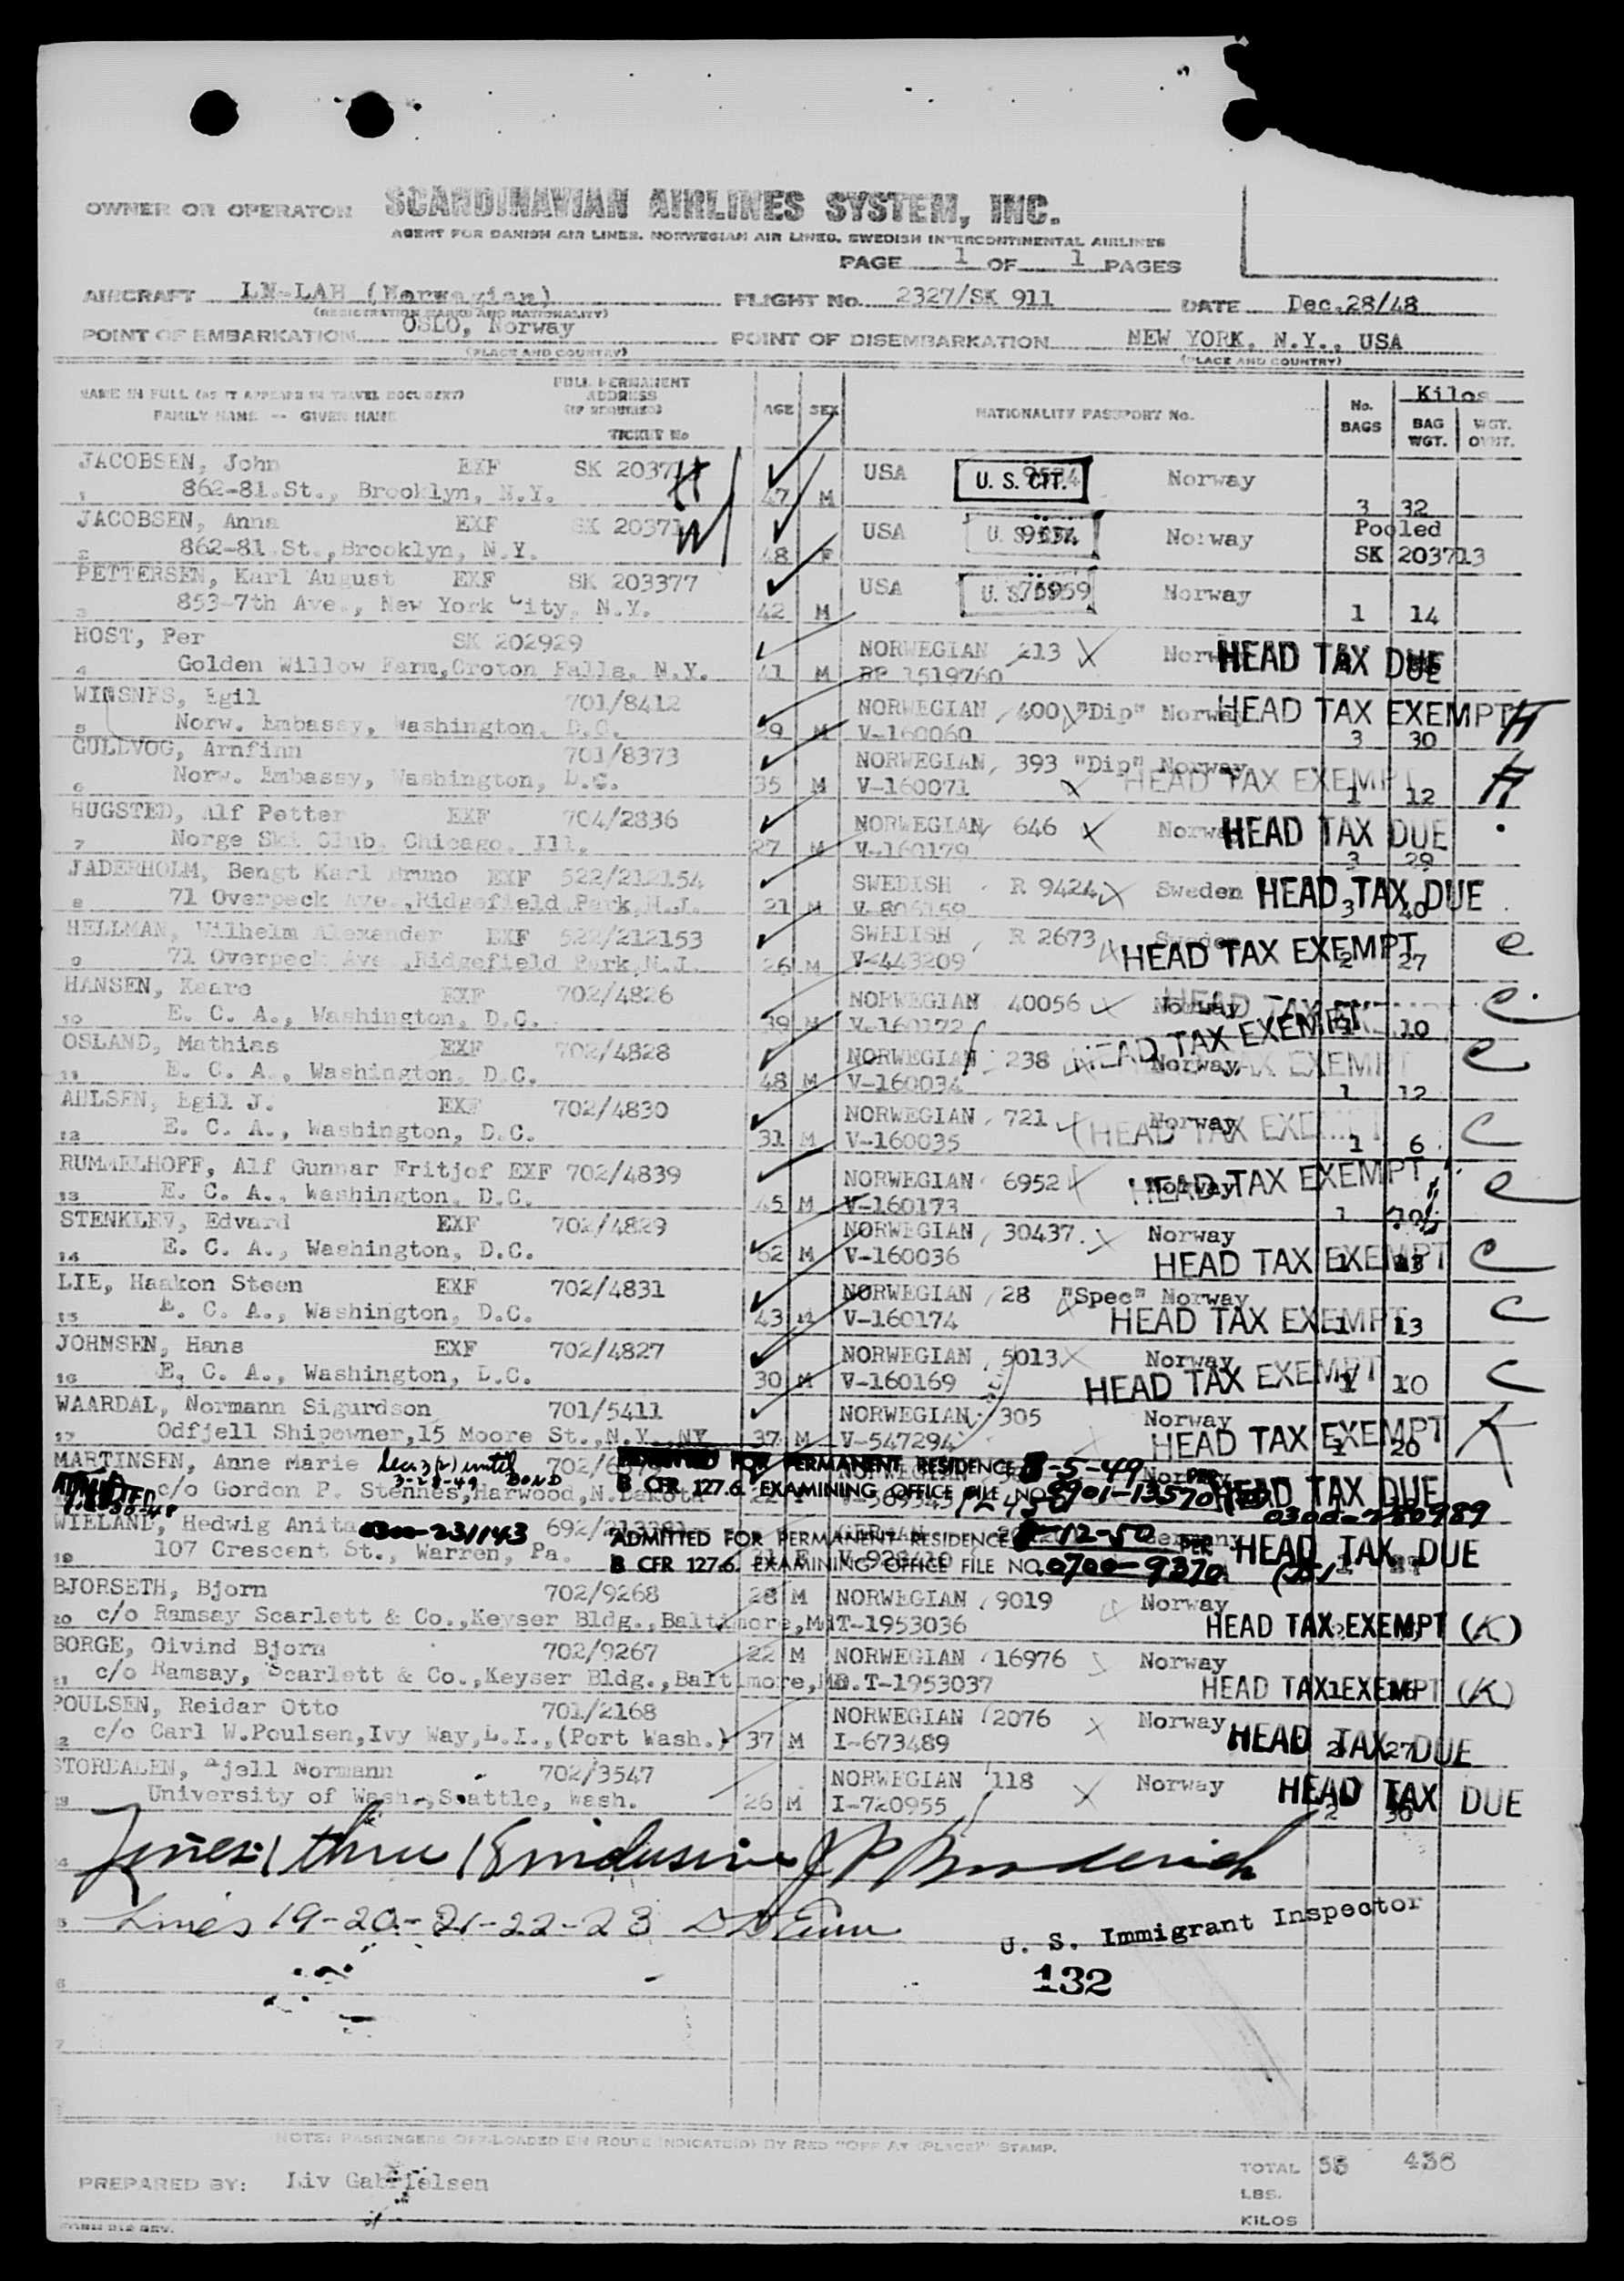 OWNER OR OPERATOR SCANDINAVIAN AIRLINES SYSTEM, INC.
AGENT FOR DANISH AIR LINES. NORWEGIAN AIR LINES. SWEDISH INTERCONTINENTAL AIRLINES
PAGE 1 OF 1 PAGES
AIRCRAFT LN-LAH (Norwegian) FLIGHT No. 2327/SK 911 DATE Dec.28/48
(REGISTRATION MARKS AND NATIONALITY)
POINT OF EMBARKATION OSLO, Norway POINT OF DISEMBARKATION NEW YORK, N.Y., USA
(PLACE AND COUNTRY) (PLACE AND COUNTRY)
NAME IN FULL (AS IT APPEARS IN TRAVEL DOCUMENT) FULL PERMANENT ADDRESS (IF REQUIRED) AGE SEX NATIONALITY PASSPORT No. No. BAGS Kilos
FAMILY NAME -- GIVEN NAME TICKET No BAG WGT. WGT.
JACOBSEN, John EXF SK 20371 USA U. S. CIT. Norway
1 862-81.St., Brooklyn, N.Y. H 47 M 3 32
JACOBSEN, Anna EXF SK 20371 USA Norway Pooled
2 862-81 St.,Brooklyn, N.Y. W 48 F SK 203713
PETTERSEN, Karl August EXF SK 203377 USA 75959 Norway
3 853-7th Ave., New York City, N.Y. 42 M 1 14
HOST, Per SK 202929 NORWEGIAN 213 HEAD TAX DUE
4 Golden Willow Farm,Croton Falls, N.Y. 41 M RP 1519760
WINSNES, Egil 701/8412 NORWEGIAN 400 "Dip" Norway HEAD TAX EXEMPT H
5 Norw. Embassy, Washington, D.C. M V-160060 3 30
GULLVOG, Arnfinn 701/8373 NORWEGIAN 393 "Dip" Norway HEAD TAX EXEMPT H
6 Norw. Embassy, Washington, D.C. 35 M V-160071 1 12
HUGSTED, Alf Petter EXF 704/2836 NORWEGIAN 646 Norway HEAD TAX DUE
7 Norge Ski Club, Chicago, Ill. 27 M V-160179 3 29
JADERHOLM, Bengt Karl Bruno EXF 522/212154 SWEDISH R 9424 Sweden HEAD TAX DUE
8 71 Overpeck Ave.,Ridgefield Park,N.J. 21 M V-806159 3 40
HELLMAN, Vilhelm Alexander EXF 522/212153 SWEDISH R 2673 Sweden HEAD TAX EXEMPT e
9 71 Overpeck Ave.,Ridgefield Park,N.J. 26 M V-443209 2 27
HANSEN, Kaare EXF 702/4826 NORWEGIAN 40056 Norway HEAD TAX EXEMPT e
10 E. C. A., Washington, D.C. 39 M V-160172 10
OSLAND, Mathias EXF 702/4828 NORWEGIAN 238 Norway HEAD TAX EXEMPT e
11 E. C. A., Washington, D.C. 48 M V-160034 1 12
AULSEN, Egil J. EXF 702/4830 NORWEGIAN 721 Norway HEAD TAX EXEMPT C
12 E. C. A., Washington, D.C. 31 M V-160035 1 6
RUMMELHOFF, Alf Gunnar Fritjof EXF 702/4839 NORWEGIAN 6952 Norway HEAD TAX EXEMPT e
13 E. C. A., Washington, D.C. 45 M V-160173 1 10
STENKLEV, Edvard EXF 702/4829 NORWEGIAN 30437 Norway
14 E. C. A., Washington, D.C. 62 M V-160036 HEAD TAX EXEMPT C
LIE, Haakon Steen EXF 702/4831 NORWEGIAN 28 "Spec" Norway
15 E. C. A., Washington, D.C. 43 M V-160174 HEAD TAX EXEMPT 1 13 C
JOHNSEN, Hans EXF 702/4827 NORWEGIAN 5013 Norway
16 E. C. A., Washington, D.C. 30 M V-160169 HEAD TAX EXEMPT 1 10 C
WAARDAL, Normann Sigurdson 701/5411 NORWEGIAN 305 Norway
17 Odfjell Shipowner,15 Moore St.,N.Y.,NY 37 M V-547294 HEAD TAX EXEMPT 20 K
MARTINSEN, Anne Marie 702/ ADMITTED FOR PERMANENT RESIDENCE 8-5-49 PER HEAD TAX DUE
c/o Gordon P. Stennes,Harwood,N.Dakota 8 CFR 127.6. EXAMINING OFFICE FILE NO. 0901-13570
0300-780989
WIELAND, Hedwig Anita 0300-231143 692/ ADMITTED FOR PERMANENT RESIDENCE PER HEAD TAX DUE
19 107 Crescent St., Warren, Pa. 8 CFR 127.6. EXAMINING OFFICE FILE NO. 0700-9370
BJORSETH, Bjorn 702/9268 28 M NORWEGIAN 9019 Norway
20 c/o Ramsay Scarlett & Co.,Keyser Bldg.,Baltimore,Md T-1953036 HEAD TAX EXEMPT (K)
BORGE, Oivind Bjorn 702/9267 22 M NORWEGIAN 16976 Norway
21 c/o Ramsay, Scarlett & Co.,Keyser Bldg.,Baltimore,Md.T-1953037 HEAD TAX EXEMPT (K)
POULSEN, Reidar Otto 701/2168 NORWEGIAN 2076 Norway
22 c/o Carl W.Poulsen,Ivy Way,L.I.,(Port Wash.) 37 M I-673489 HEAD TAX DUE 2 27
STORDALEN, Kjell Normann 702/3547 NORWEGIAN 118 Norway
23 University of Wash.,Seattle, Wash. 26 M I-720955 HEAD TAX DUE 2 30
Lines 1 thru 18 inclusive J P Broderick
Lines 19-20-21-22-23
U. S. Immigrant Inspector
132
NOTE: PASSENGERS OFF-LOADED EN ROUTE INDICATE(D) BY RED "OFF AT (PLACE)" STAMP.
PREPARED BY: Liv Gabrielsen TOTAL 38 436
LBS.
KILOS